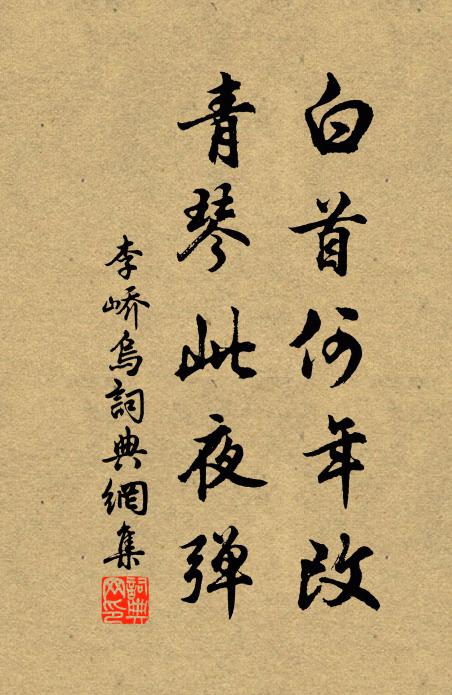 白首何年改
青琴此夜弹
李峤乌詞典網集
詞典网印